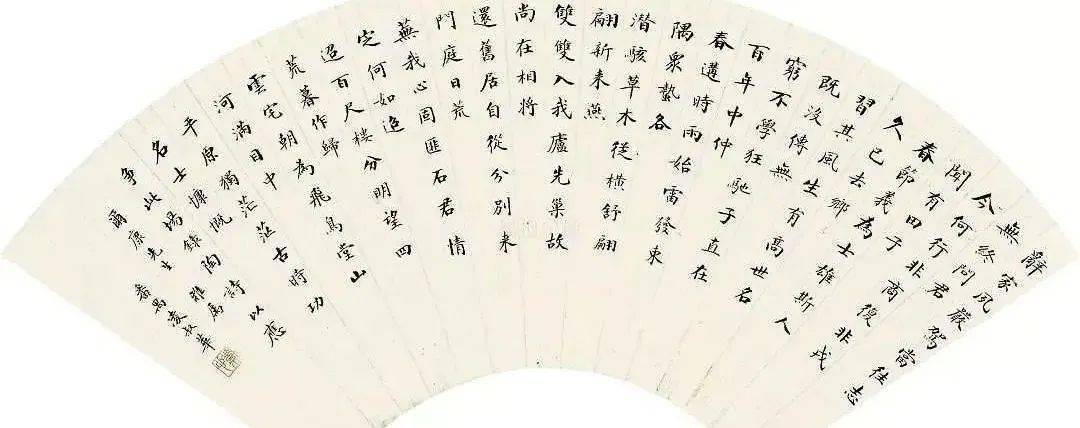 辭家夙嚴駕當往志
無終問君
今何行非商復非戎
聞有田子
春節義為士雄斯人
久已去鄉
習其風生有高世名
既没傳無
窮不學狂馳于直在
百年中仲
春遘時雨始雷發東
隅衆蟄各
潛駭草木從橫舒翩
翩新来燕
雙雙入我廬先巢故
尚在相將
還舊居自從分別来
門庭日荒
蕪我心固匪石君情
定何如迢
迢百尺樓分明望四
荒暮作歸
雲宅朝為飛鳥堂山
河滿目中
平原獨茫茫古時功
名士慷慨
爭此場錄陶詩以應
爾康先生雅屬
番禺凌叔華